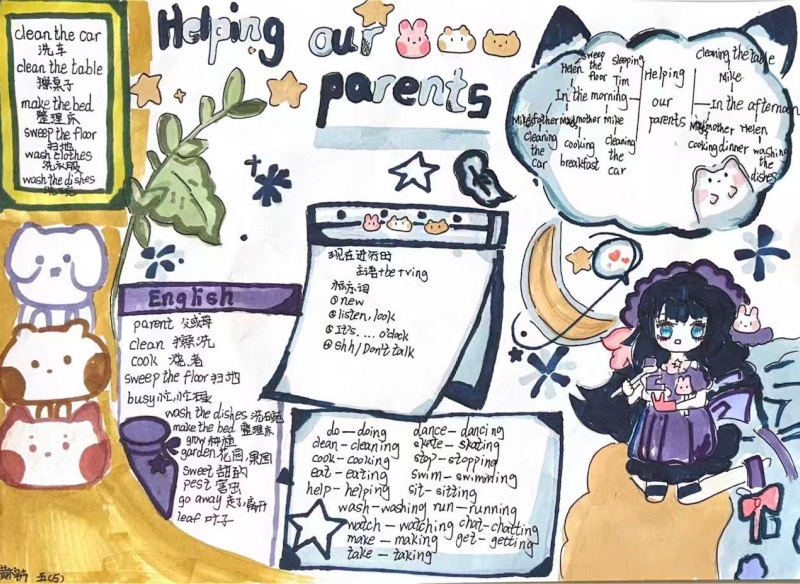 Helping our
parents
clean the car
洗车
clean the table
擦桌子
make the bed
整理床
sweep the floor
扫地
wash clothes
洗衣服
wash the dishes
洗碗
Helping
our
parents
In the morning
Helen
sweep
the
floor
sleeping
Tim
Mike father
cleaning
the
car
mother
cooking
breakfast
Mike
cleaning
the
car
In the afternoon
cleaning the table
Mike
mother
cooking dinner
Helen
washing
the
dishes
现在进行时
主语+be+ving
标志词
①now
②listen,look
③It's....o'clock
④shh/Don't talk
English
parent 父或母
clean 擦洗
cook 烧,煮
sweep the floor 扫地
busy 忙,忙碌
wash the dishes 洗碗
make the bed 整理床
grow 种植
garden 花园,果园
sweet 甜的
pest 害虫
go away 走了,离开
leaf 叶子
do—doing dance—dancing
clean—cleaning skate—skating
cook—cooking stop—stopping
eat—eating swim—swimming
help—helping sit—sitting
wash—washing run—running
watch—watching chat—chatting
make—making get—getting
take—taking
五(5)